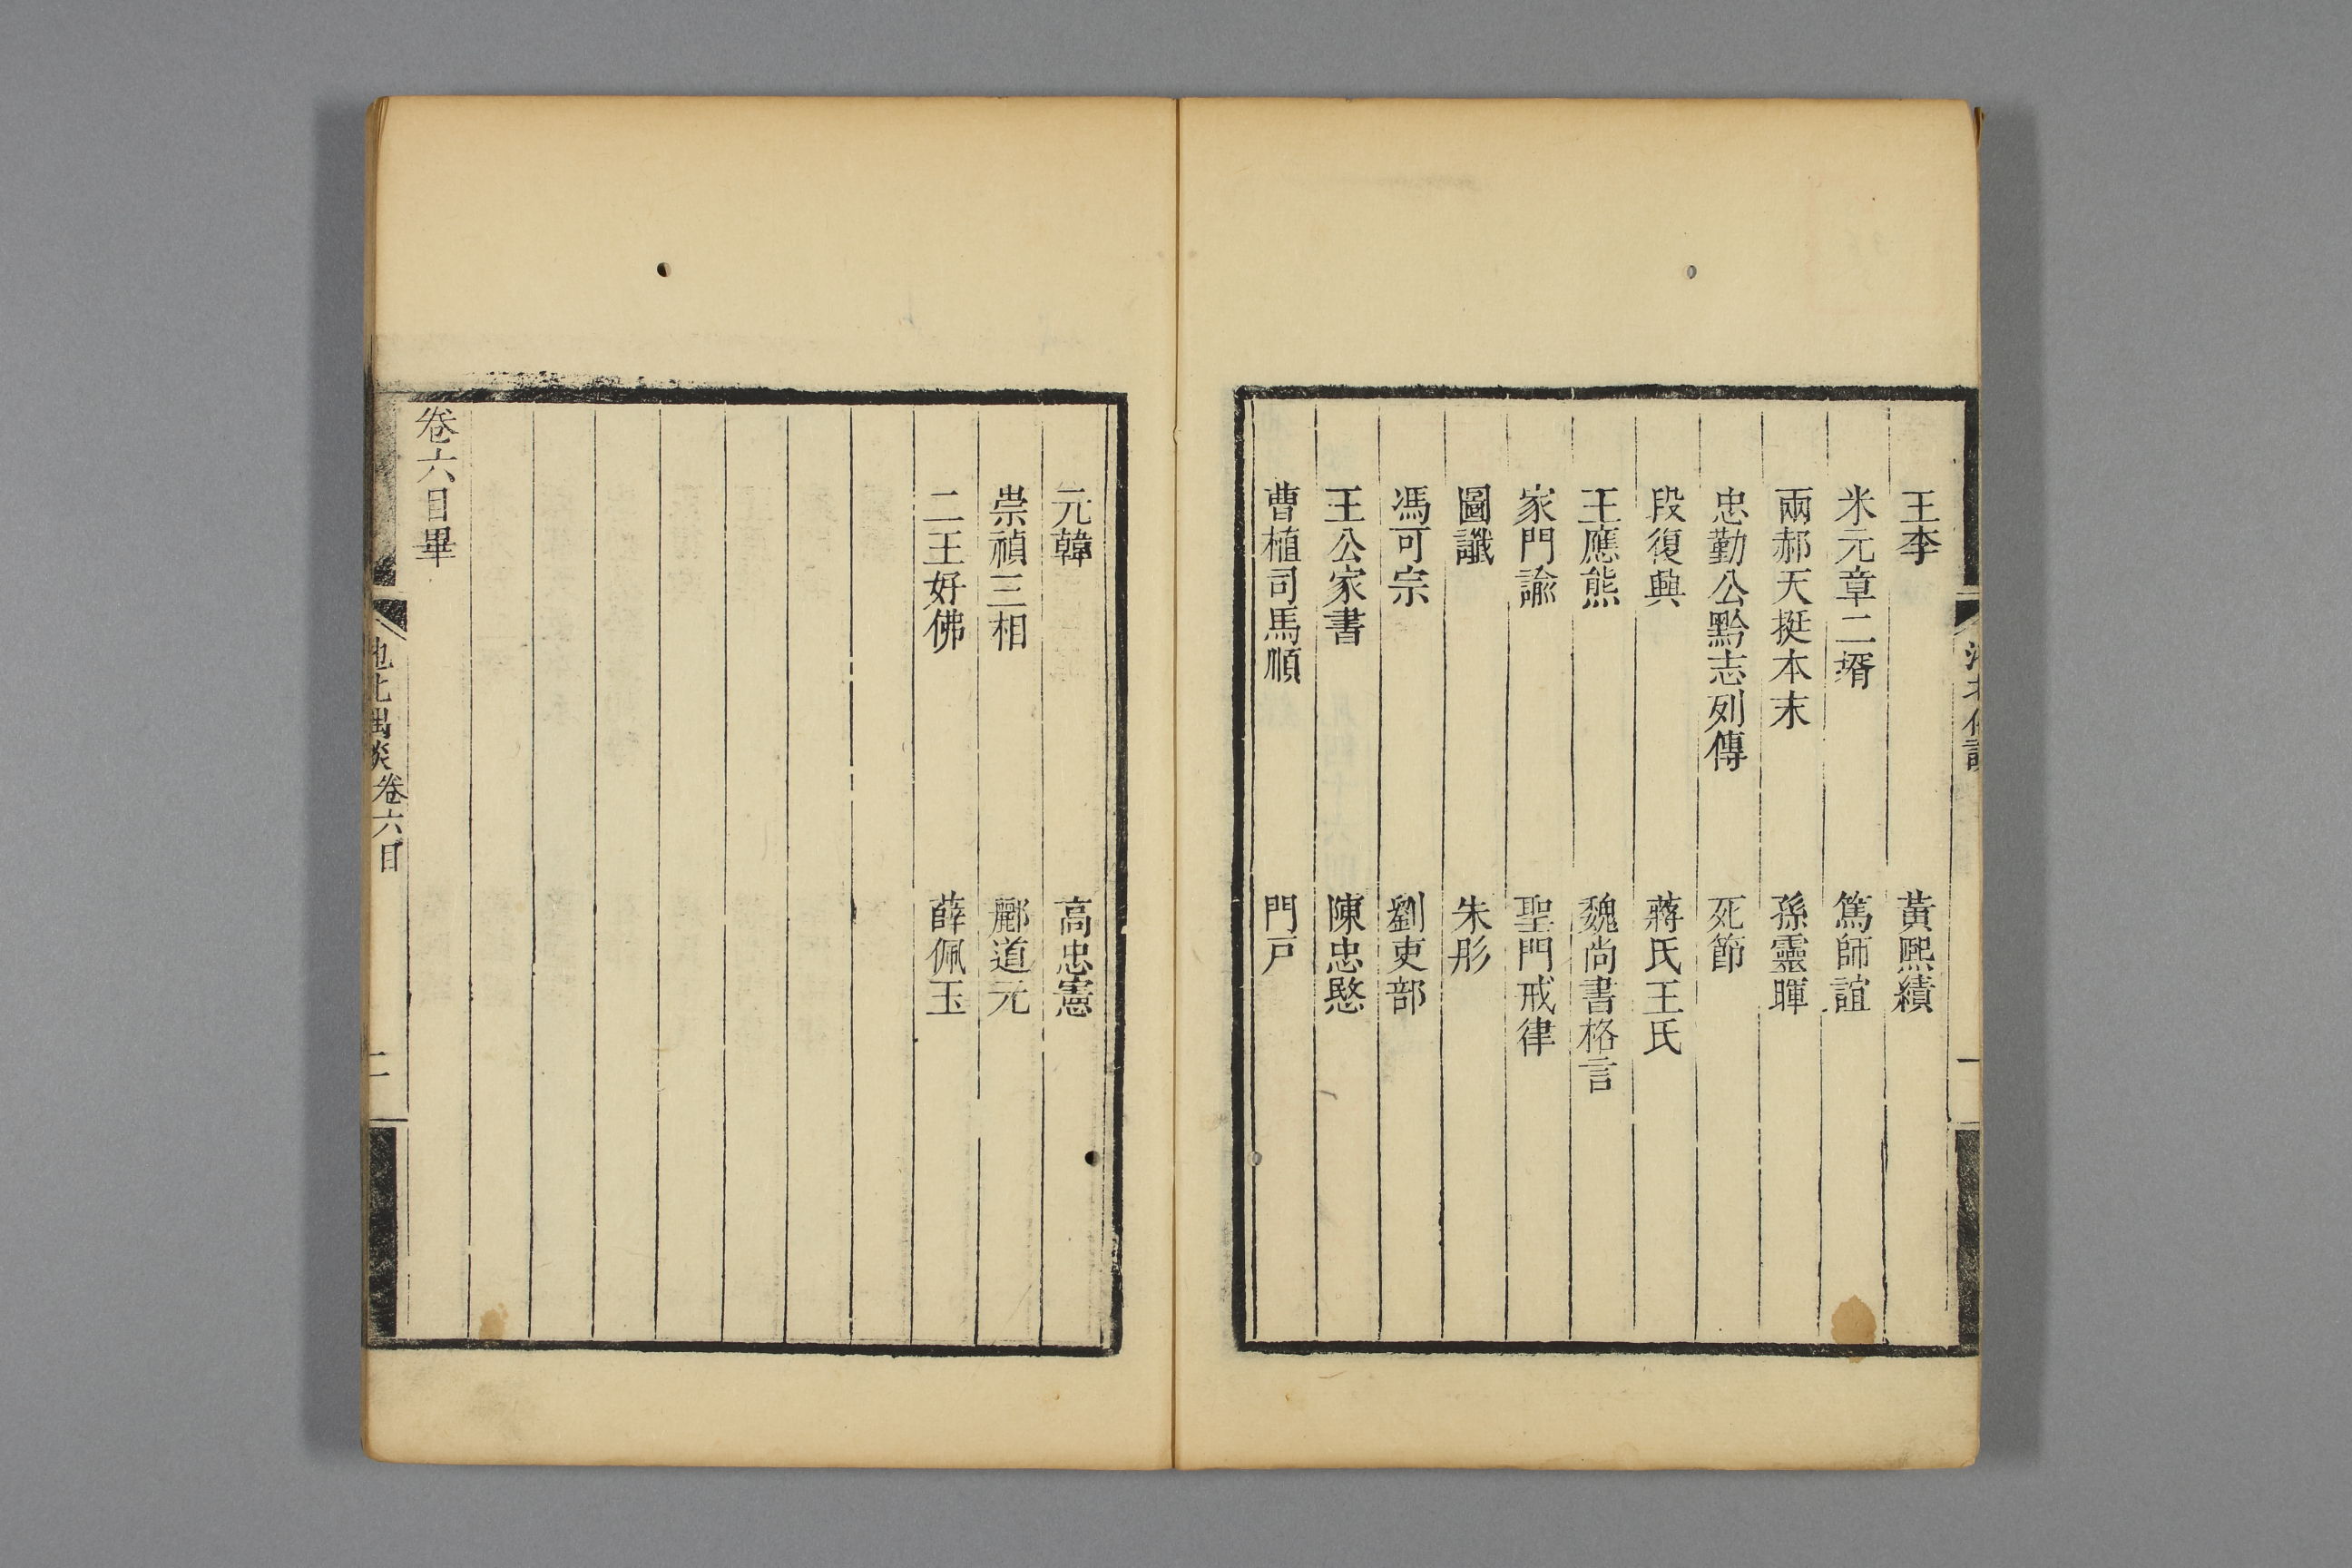 王李　黃熙績
米元章二壻　篤師誼
兩郝天挺本末　孫靈暉
忠勤公黔志列傳　死節
段復興　蔣氏王氏
王應熊　魏尚書格言
家門諭　聖門戒律
圖讖　朱彤
馮可宗　劉吏部
王公家書　陳忠愍
曹植司馬順　門戸
元韓　高忠憲
崇禎三相　酈道元
二王好佛　薛佩玉
卷六目畢
池北偶談 卷六目 二